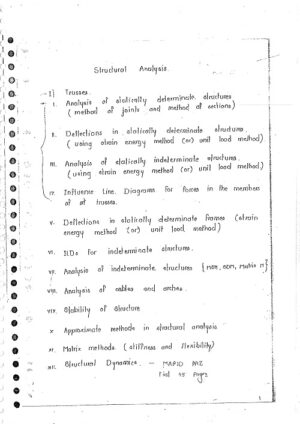 Structural Analysis.
I) Trusses.
I. Analysis of statically determinate structures.
( method of joints and method of sections)
II. Deflections in statically determinate structures.
( using strain energy method (or) unit load method)
III. Analysis of statically indeterminate structures.
( using strain energy method (or) unit load method)
IV. Influence Line. Diagrams for forces in the members
of trusses.
V. Deflections in statically determinate frames (strain
energy method (or) unit load method)
VI. ILDs for indeterminate structures.
VII. Analysis of indeterminate structures
VIII. Analysis of cables and arches.
Stability of structure
X Approximate methods in structural analysis
XI. Matrix methods (stiffness and flexibility)
XII. Structural Dynamics. -
pages
1